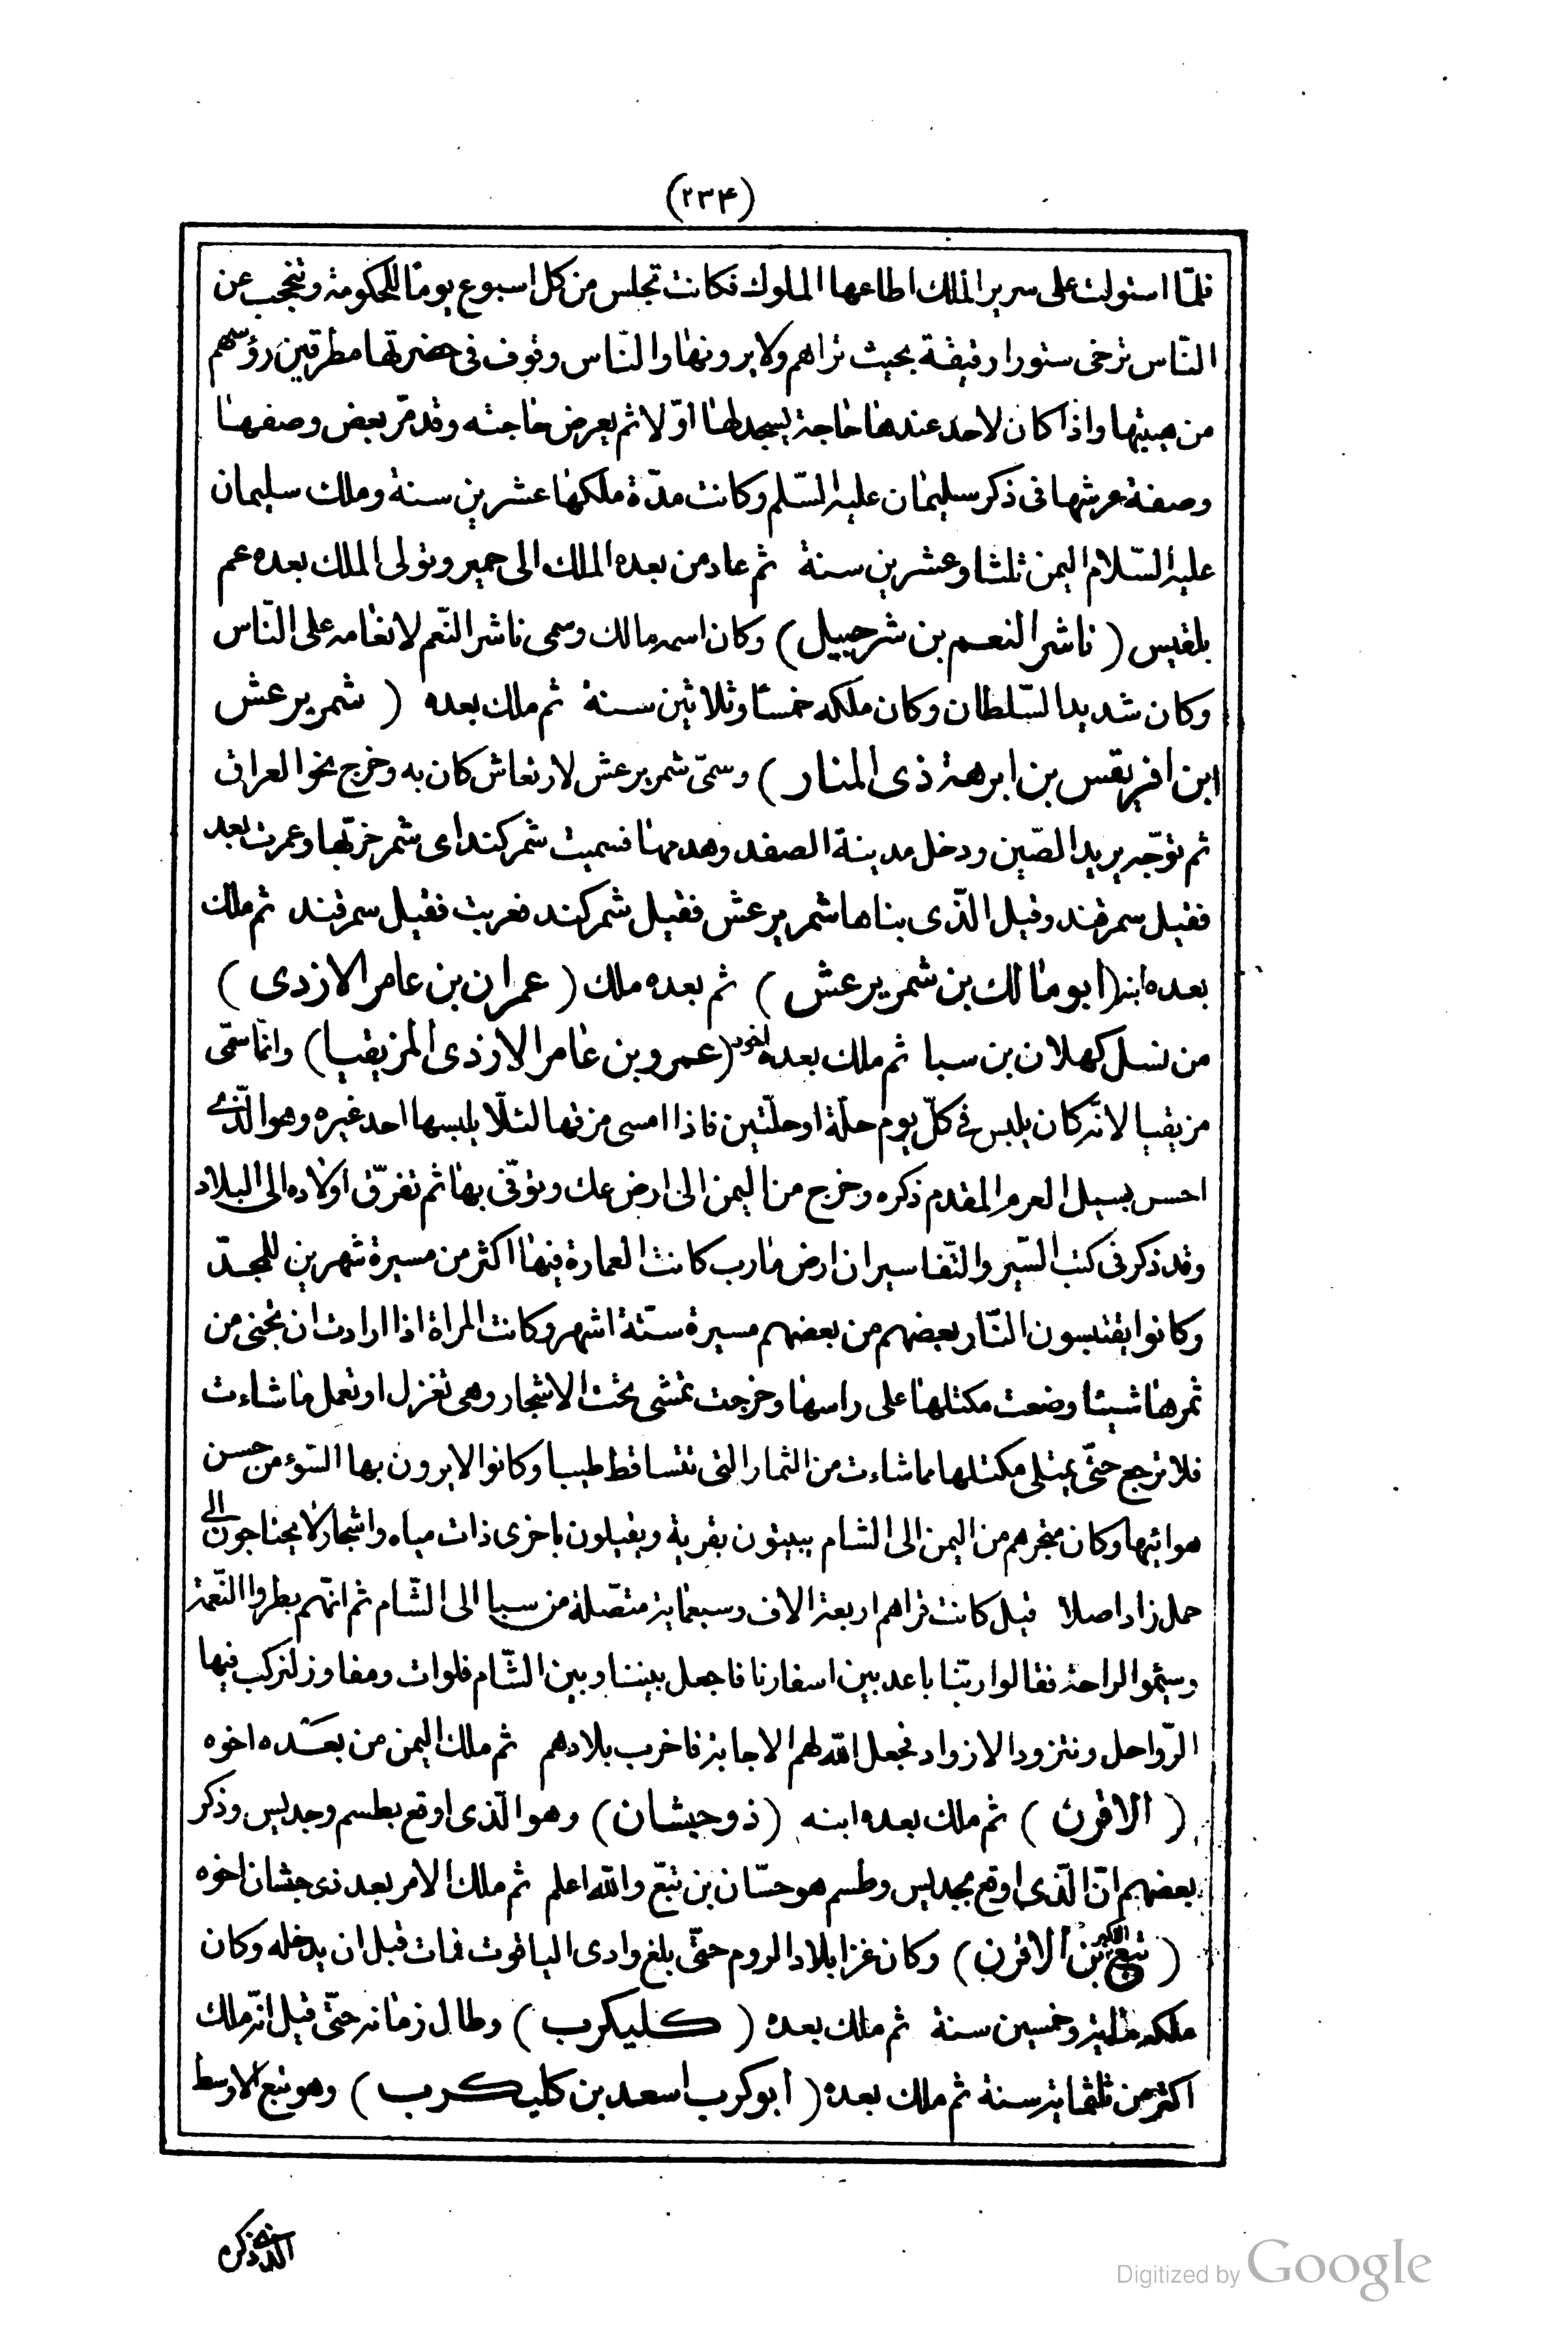 (٢٣۴)
فلمّا استولت على سرير الملك اطاعها الملوك فكانت تجلس من كل اسبوع يومًا للحكومة وتنحجب عن
النّاس ترخى ستورا رقيقة بحيث تراهم ولا يرونها والنّاس وقوف فى حضرتها مطرقين رؤسهم
من هيبتها واذا كان لاحد عندها حاجة يسجد لها اوّلا ثم يعرض حاجته وقد مرّ بعض وصفها
وصفة عرشها فى ذكر سليمان عليه السّلم وكانت مدّة ملكها عشرين سنة وملك سليمان
عليه السّلام اليمن ثلثا وعشرين سنة ثم عاد من بعده الملك الى حمير وتولى الملك بعده عم
بلقيس ( ناشر النعم بن شرحبيل ) وكان اسمه مالك وسمى ناشر النّعم لانعامه على النّاس
وكان شديد السّلطان وكان ملكه خمسًا وثلاثين سنة ثم ملك بعده ( شمر يرعش
ابن افريقس بن ابرهة ذى المنار ) وسمّى شمر يرعش لارتعاش كان به وخرج نحو العراق
ثم توجّه يريد الصّين ودخل مدينة الصغد وهدمها فسميت شمركند اى شمر خربها وعمرت بعد
فقيل سمرقند وقيل الّذى بناها شمر يرعش فقيل شمركند فعربت فقيل سمرقند ثم ملك
بعده ابنه ( ابو مالك بن شمر يرعش ) ثم بعده ملك ( عمران بن عامر الازدى )
من نسل كهلان بن سبا ثم ملك بعده اخوه ( عمرو بن عامر الازدى المزيقيا ) وانّما سمّى
مزيقيا لانّه كان يلبس فى كلّ يوم حلّة اوحلّتين فاذا امسى مزقها لئلّا يلبسها احد غيره وهو الّذى
احسن بسيل العرم المقدم ذكره وخرج من اليمن الى ارض عك وتوفّى بها ثم تفرّق اولاده الى البلاد
وقد ذكر فى كتب السّير والتّفاسير ان ارض مارب كانت العمارة فيها اكثر من مسيرة شهرين للمجدّ
وكانوا يقتبسون النّار بعضهم من بعضهم مسيرة ستّة اشهر وكانت المراة اذا ارادت ان تجنى من
ثمرها شيئا وضعت مكتلها على راسها وخرجت تمشى تحت الاشجار وهى تغزل او تعمل ما شاءت
فلا ترجع حتّى يمتلى مكتلها مما شاءت من الثمار التى تتساقط طيبا وكانوا لا يرون بها السّوء من حسن
هوائها وكان متجرهم من اليمن الى الشام يبيتون بقرية ويقيلون باخرى ذات مياه واشجار لا يحتاجون الى
حمل زاد اصلا قيل كانت قراهم اربعة الاف وسبعماية متصّلة من سبا الى الشّام ثم انّهم بطروا النّعمة
وسئموا الراحة فقالوا ربّنا باعد بين اسفارنا فاجعل بيننا وبين الشّام فلوات ومفاوز لنركب فيها
الرّواحل ونتزود الازواد فجعل الله لهم الاجابة فاخرب بلادهم ثم ملك اليمن من بعده اخوه
( الاقرن ) ثم ملك بعده ابنه ( ذو حبشان ) وهو الّذى اوقع بطسم وجديس وذكر
بعضهم انّ الّذى اوقع بجديس وطسم هو حسّان بن تبّع والله اعلم ثم ملك الامر بعد ذى حبشان اخوه
( تبع الاكبر بن الاقرن ) وكان غزا بلاد الروم حتّى بلغ وادى الياقوت فمات قبل ان يدخله وكان
ملكه مائة وخمسين سنة ثم ملك بعده ( كليكرب ) وطال زمانه حتّى قيل انّه ملك
اكثر من ثلثماية سنة ثم ملك بعده ( ابوكرب اسعد بن كليكرب ) وهو تبع الاوسط
الذى ذكره
Digitized by Google